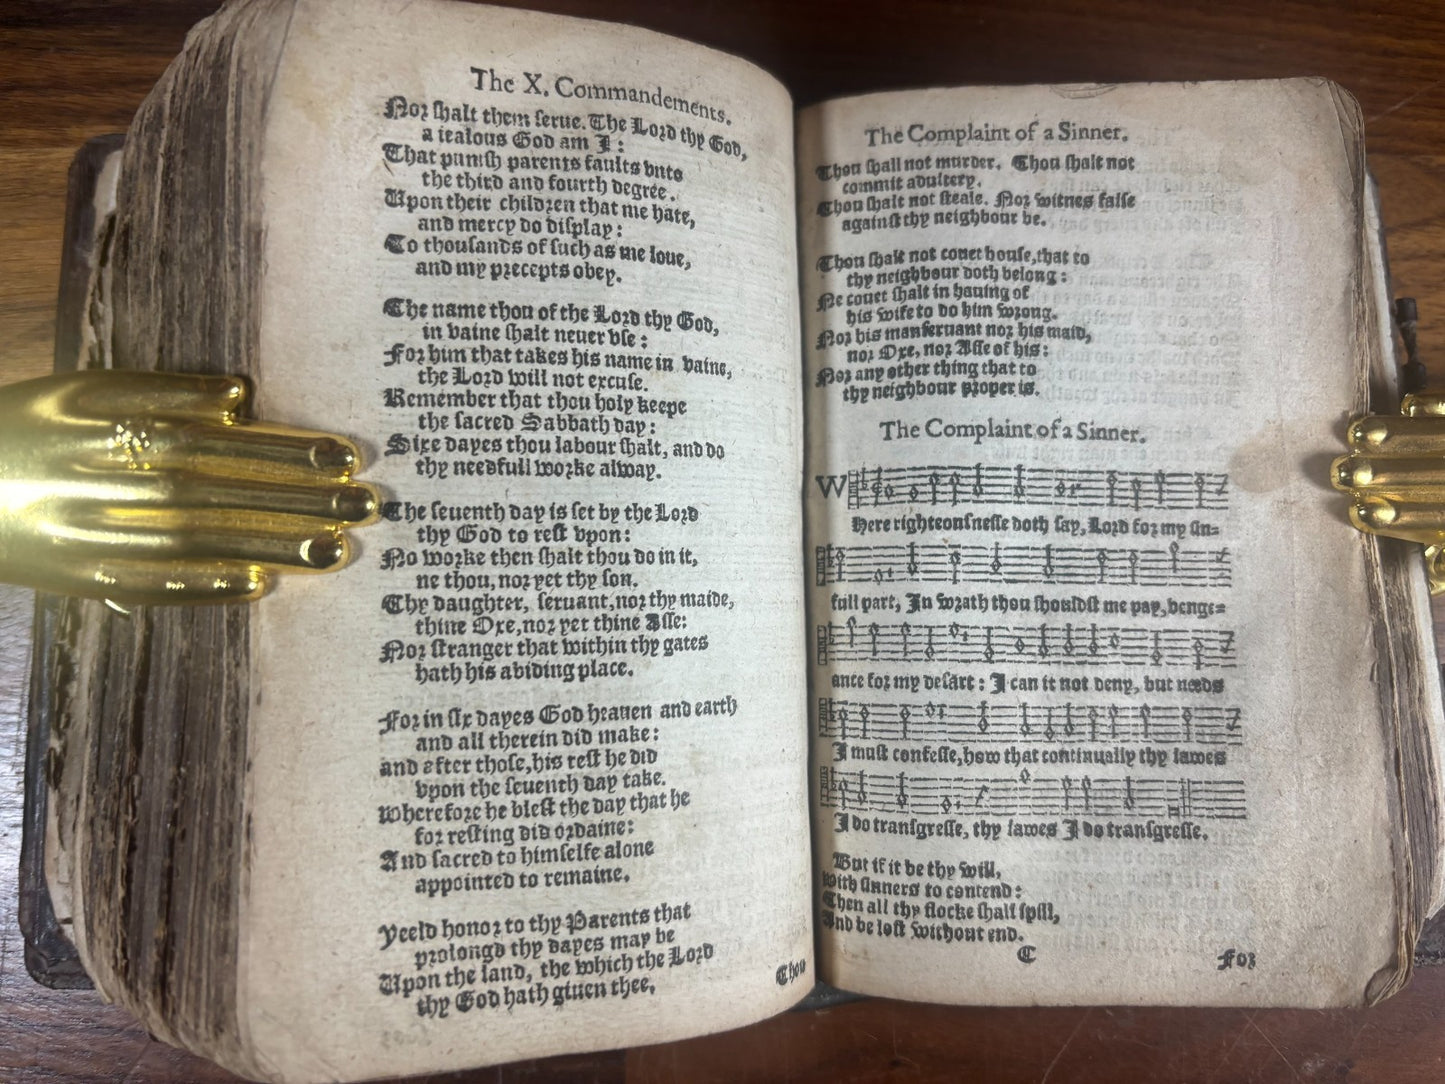 The X. Commandements.
Nor shalt them serue. The Lord thy God,
a iealous God am I:
That punish parents faults vnto
the third and fourth degrée.
Upon their children that me hate,
and mercy do display:
To thousands of such as me loue,
and my precepts obey.
The name thou of the Lord thy God,
in vaine shalt neuer vse:
For him that takes his name in vaine,
the Lord will not excuse.
Remember that thou holy keepe
the sacred Sabbath day:
Sixe dayes thou labour shalt, and do
thy needfull worke alway.
The seuenth day is set by the Lord
thy God to rest vpon:
No worke then shalt thou do in it,
ne thou, nor yet thy son.
Thy daughter, seruant, nor thy maide,
thine Oxe, nor yet thine Asse:
Nor stranger that within thy gates
hath his abiding place.
For in six dayes God heauen and earth
and all therein did make:
and after those, his rest he did
vpon the seuenth day take.
Wherefore he blest the day that he
for resting did ordaine:
And sacred to himselfe alone
appointed to remaine.
Yeeld honor to thy Parents that
prolongd thy dayes may be
Upon the land, the which the Lord
thy God hath giuen thee.
Thou
The Complaint of a Sinner.
Thou shall not murder. Thou shalt not
commit adultery.
Thou shalt not steale. Nor witnes false
against thy neighbour be.
Thou shalt not couet house, that to
thy neighbour doth belong:
Ne couet shalt in hauing of
his wife to do him wrong.
Nor his manseruant nor his maid,
nor Oxe, nor Asse of his:
Nor any other thing that to
thy neighbour proper is.
The Complaint of a Sinner.
WHere righteousnesse doth say, Lord for my sin-
full part, In wrath thou shouldst me pay, venge-
ance for my desart: I can it not deny, but needs
I must confesse, how that continually thy lawes
I do transgresse, thy lawes I do transgresse.
But if it be thy will,
with sinners to contend:
Then all thy flocke shall spill,
And be lost without end.
C
For